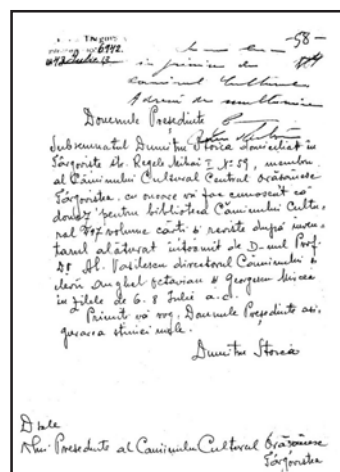 -58-
6942
in primire de
căminul Cultural
Adresă de mulțumire
Domnule Președinte
Subsemnatul Dumitru Stoica domiciliat în
Târgoviște str. Regele Mihai I Nº 59, membru
al Căminului Cultural Central Orășănesc
Târgoviște, cu onoare vă fac cunoscut că
donez pentru biblioteca Căminului Cultu-
ral 897 volume cărți și reviste după inven-
tarul alăturat întocmit de D-nul Prof.
Al. Vasilescu directorul Căminului și
elevii Anghel Octavian și Georgescu Mircea
în zilele de 6. 8 Iulie a.c.
Primiți vă rog, Domnule Președinte asi-
gurarea stimei mele.
Dumitru Stoica
Președinte al Căminului Cultural Orășănesc
Târgoviște